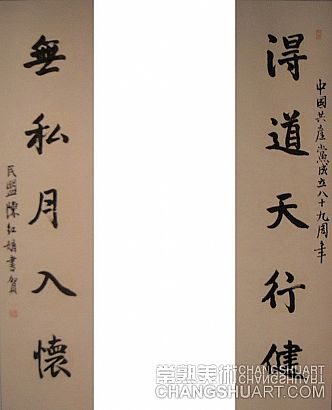 得道天行健
中國共產黨成立八十九周年
無私月入懷
民盟陳紅娟書賀
常熟美術 CHANGSHUART
CHANGSHUART.COM